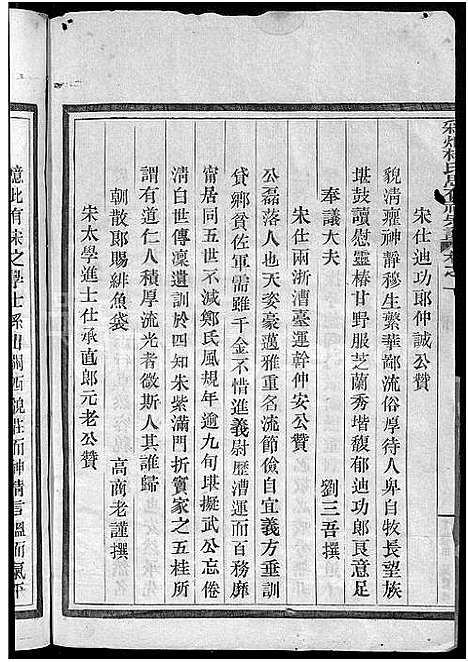 宋仕迪功郎仲誠公贊
貌清癯神靜穆生繁華鄙流俗厚待人卑自牧長望族
堪鼓讀慰靈椿甘野服芝蘭秀堦馥郁迪功郎良意足
奉議大夫 劉三吾撰
宋仕兩浙漕臺運幹仲安公贊
公磊落人也天姿豪邁雅重名流節儉自宜義方垂訓
貸鄉貧佐軍需雖千金不惜進義尉歷漕運而百務靡
甯居同五世不減鄭氏風規年逾九旬堪擬武公忘倦
淸白世傳凜遺訓於四知朱紫滿門折竇家之五桂所
謂有道仁人積厚流光者微斯人其誰歸
朝散郎賜緋魚袋 高商老謹撰
宋太學進士仕承直郎元老公贊
憶此有宋之學士系出關西貌莊而神情言溫而氣下